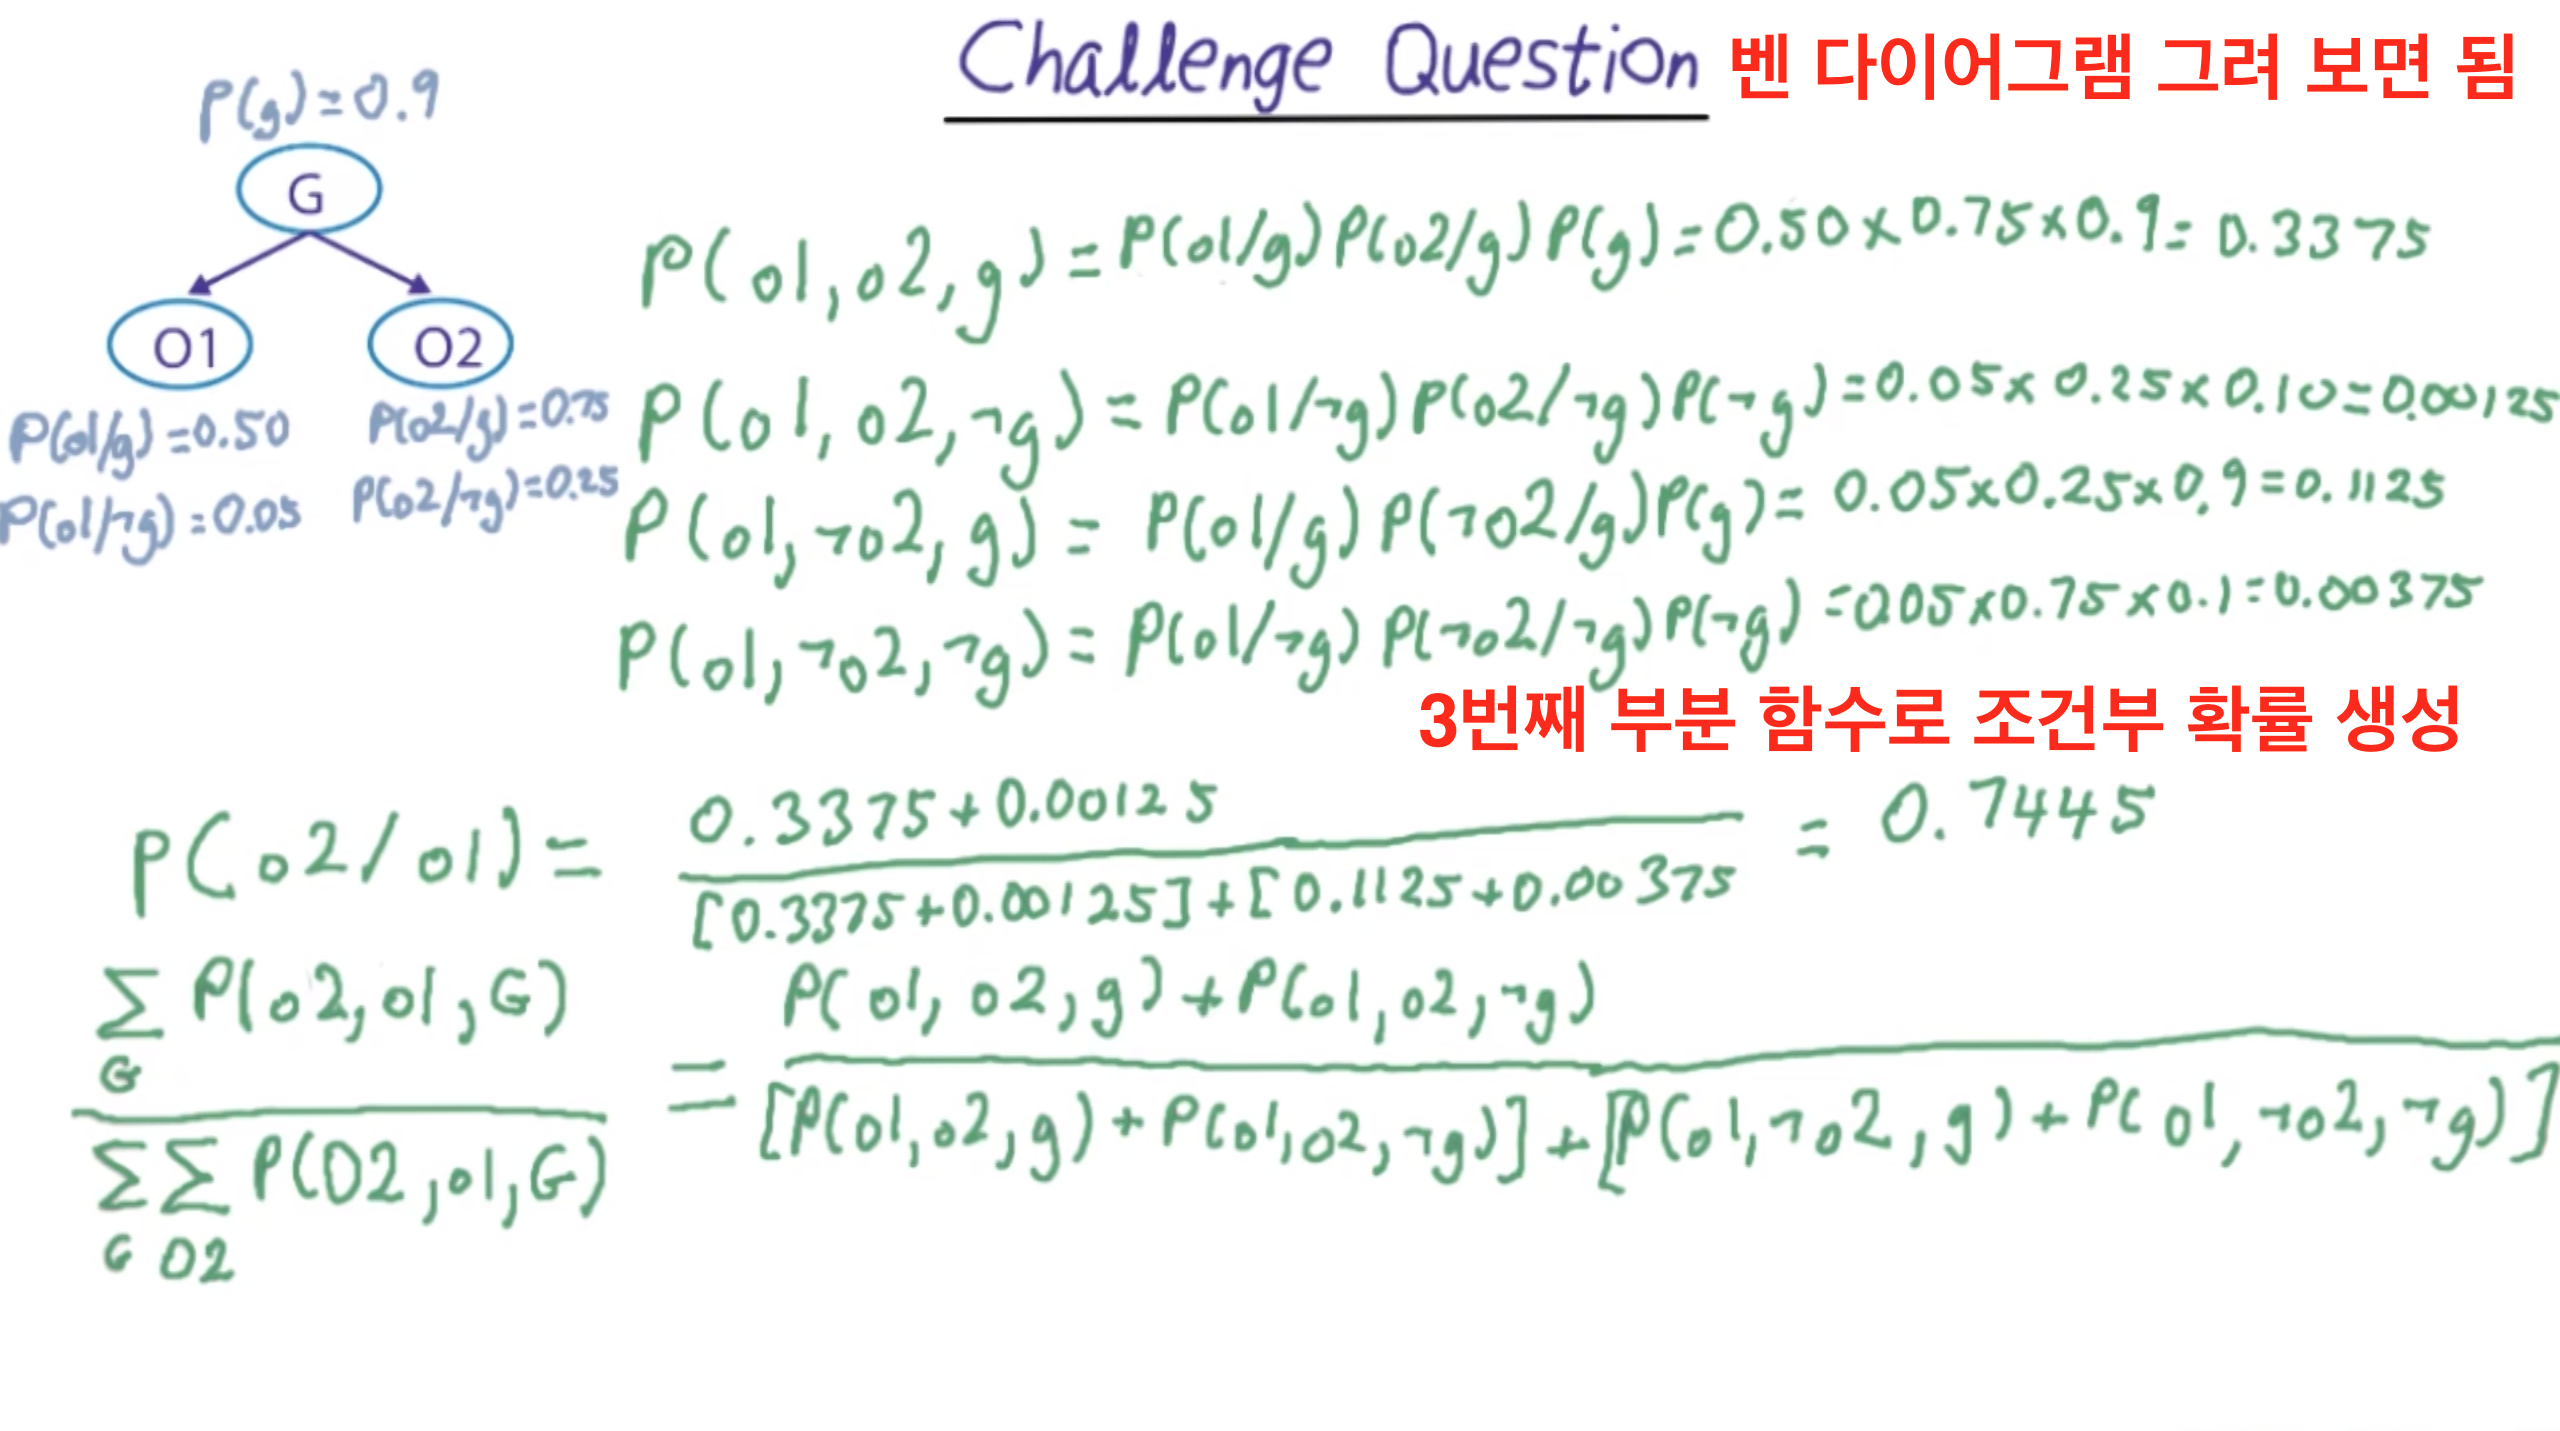 Challenge Question 벤 다이어그램 그려 보면 됨
P(g)=0.9
G
O1 O2
P(o1/g)=0.50 P(o2/g)=0.75
P(o1/¬g)=0.05 P(o2/¬g)=0.25
P(o1,o2,g)=P(o1/g)P(o2/g)P(g)=0.50x0.75x0.9=0.3375
P(o1,o2,¬g)=P(o1/¬g)P(o2/¬g)P(¬g)=0.05x0.25x0.10=0.00125
P(o1,¬o2,g)=P(o1/g)P(¬o2/g)P(g)=0.05x0.25x0.9=0.1125
P(o1,¬o2,¬g)=P(o1/¬g)P(¬o2/¬g)P(¬g)=0.05x0.75x0.1=0.00375
3번째 부분 함수로 조건부 확률 생성
0.3375+0.00125
P(o2/o1)= =0.7445
[0.3375+0.00125]+[0.1125+0.00375
Σ P(o2,o1,G) P(o1,o2,g)+P(o1,o2,¬g)
G
=
ΣΣ P(O2,o1,G) [P(o1,o2,g)+P(o1,o2,¬g)]+[P(o1,¬o2,g)+P(o1,¬o2,¬g)]
G O2